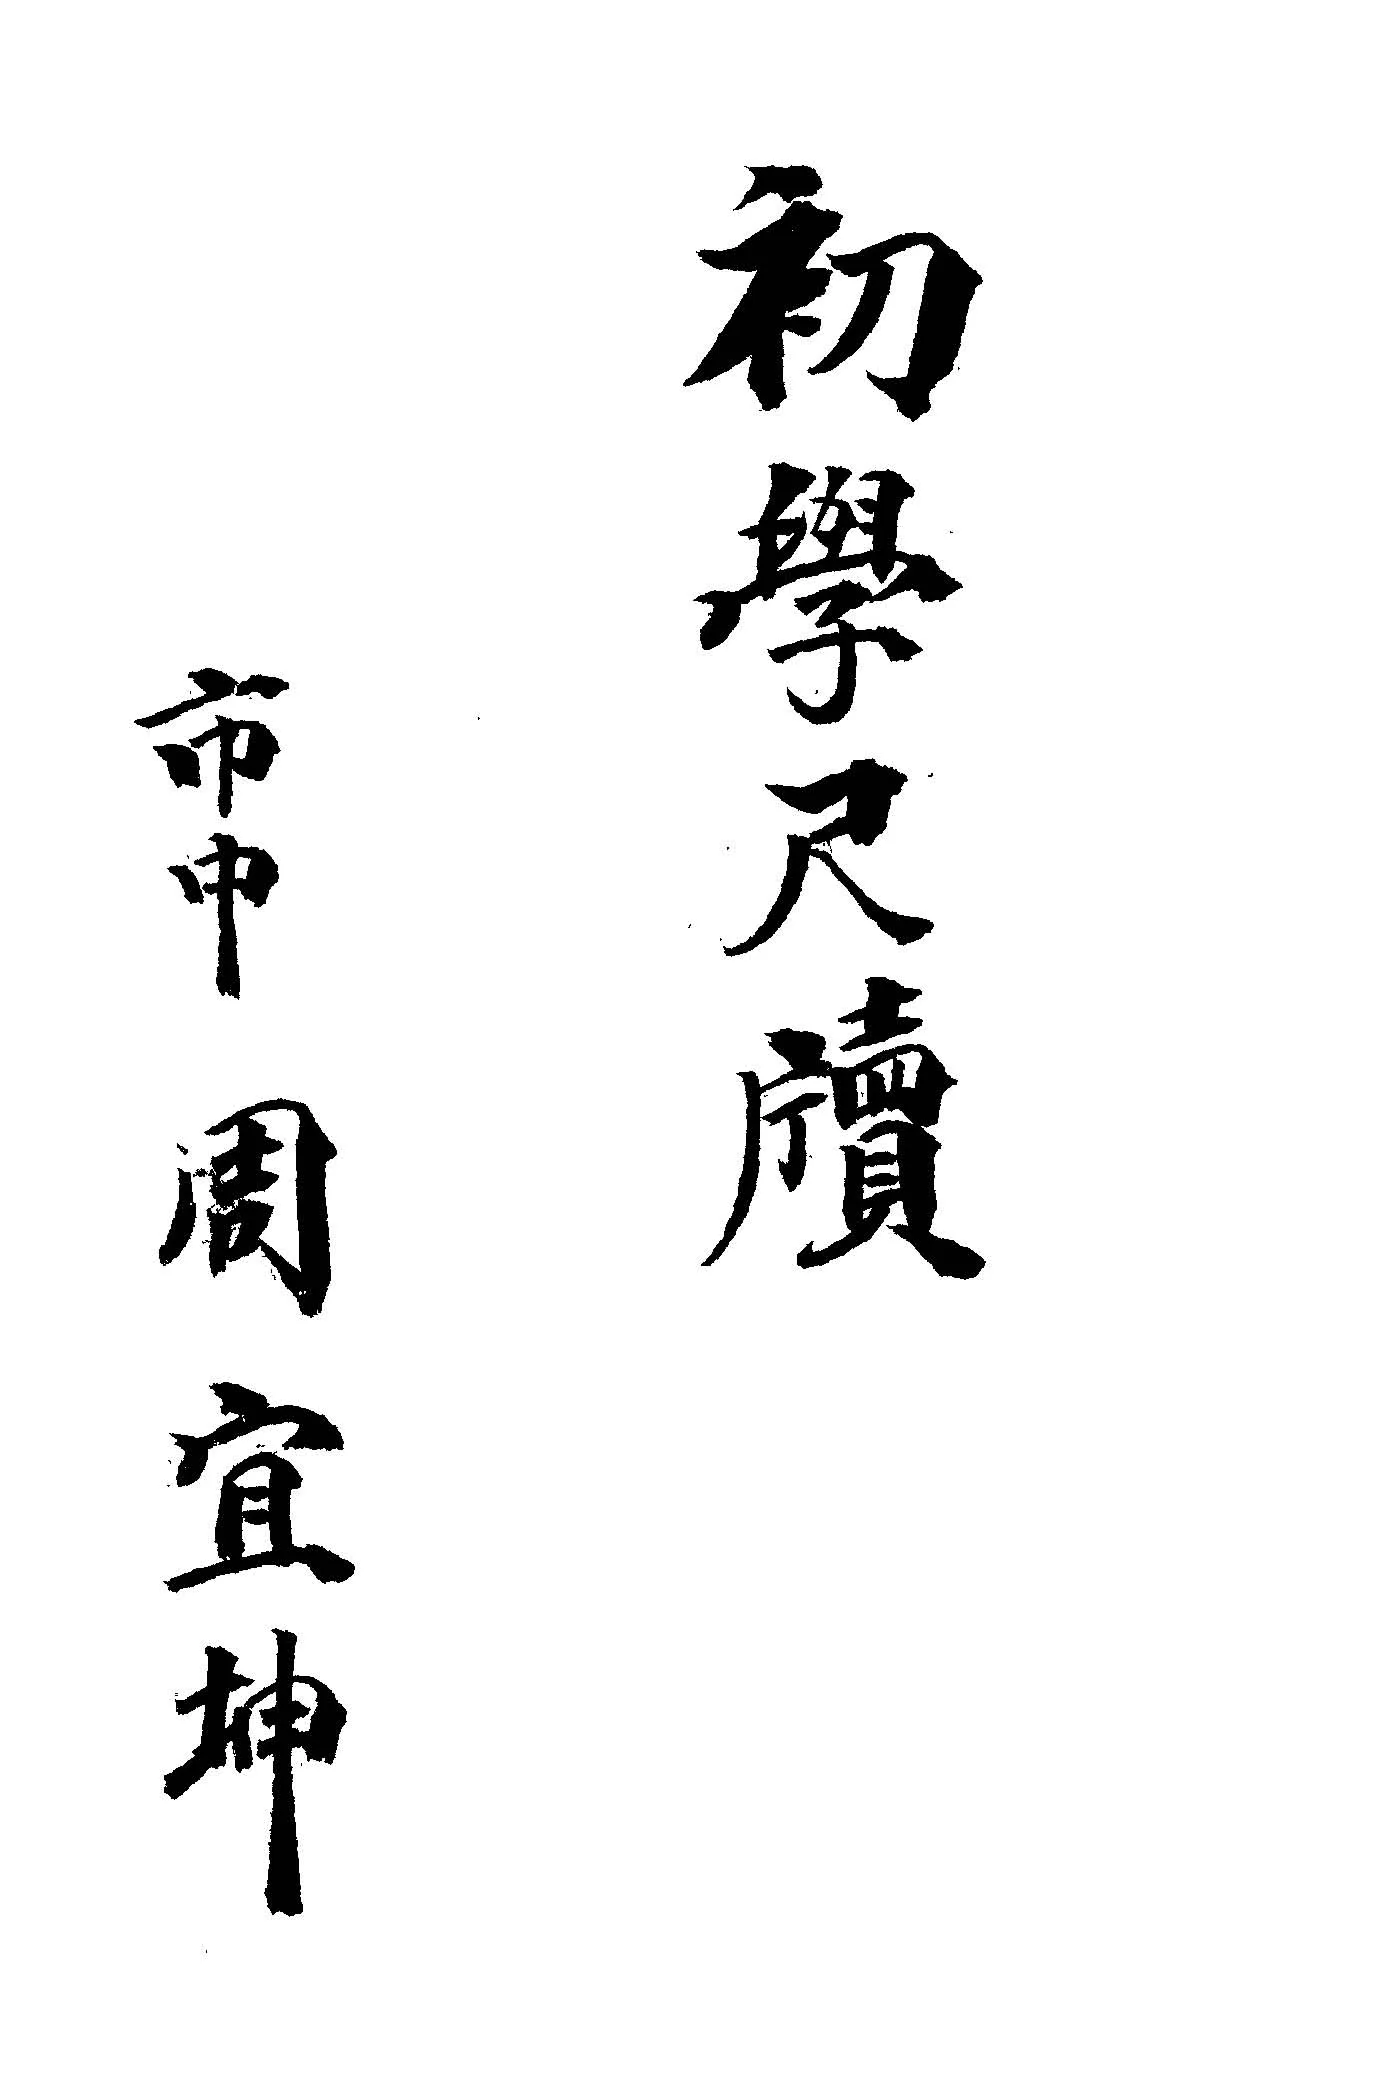 初學尺牘
市中 周宜坤